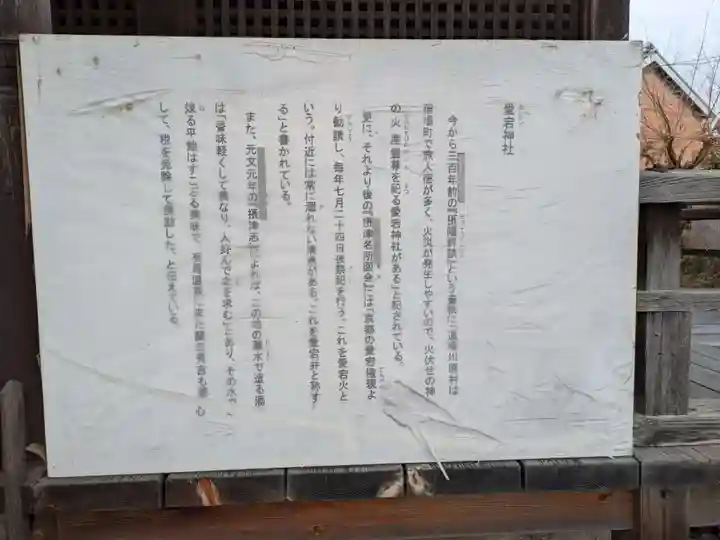 愛宕神社
今から三百年前の『摂陽群談』という書物に「道場川原村は
宿場町で旅人宿が多く、火災が発生しやすいので、火伏せの神
の火産霊尊を祀る愛宕神社がある」と記されている。
更に、それより後の『摂津名所図会』には「京都の愛宕権現よ
り勧請し、毎年七月二十四日夜祭祀を行う。これを愛宕火と
いう。付近には常に涸れない清水がある。これを愛宕井と称す
る」と書かれている。
また、元文元年の『摂津志』によれば、この地の厳水で造る酒
は「香味軽くして異なり、人好んで之を求む」とあり、その水で
る平麹はすこぶる美味で、有馬温泉に来た豊公秀吉も感心
して、税を免除して奨励した、と伝えている。